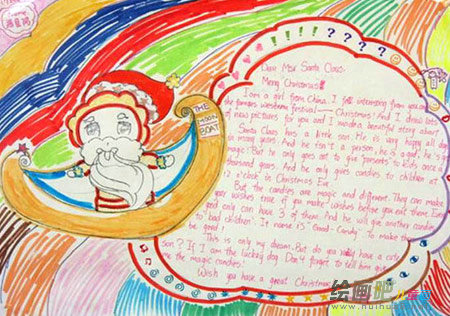 THE
MOON
BOAT
! ! ! ? ? ? ?
Dear Mr Santa Claus:
Merry Christmas!
I am a girl from China. I feel interesting from
the famous westerns festival—Christmas! And I draw lots
of new pictures for you and I write a beautiful story about
Santa Claus has a little son. He is very happy all day
in many years. And he isn't a person. He is a god; he's
But he only goes out to give presents to kids once a
thousand years. And he only gives candies to children of
12 o'clock in Christmas Eve.
But the candies are magic and different. They can make
your wishes true if you make wishes before you eat them. Every
only can have 3 of them. And he will give another candies
to "bad children". It name is "Good-Candy". To make them
be good!
This is only my dream. But do you really have a cute
son? If I am the lucky dog. Don't forget to tell him give
me the magic candies!
Wish you have a great Christmas
绘画吧
www.huihua8.com